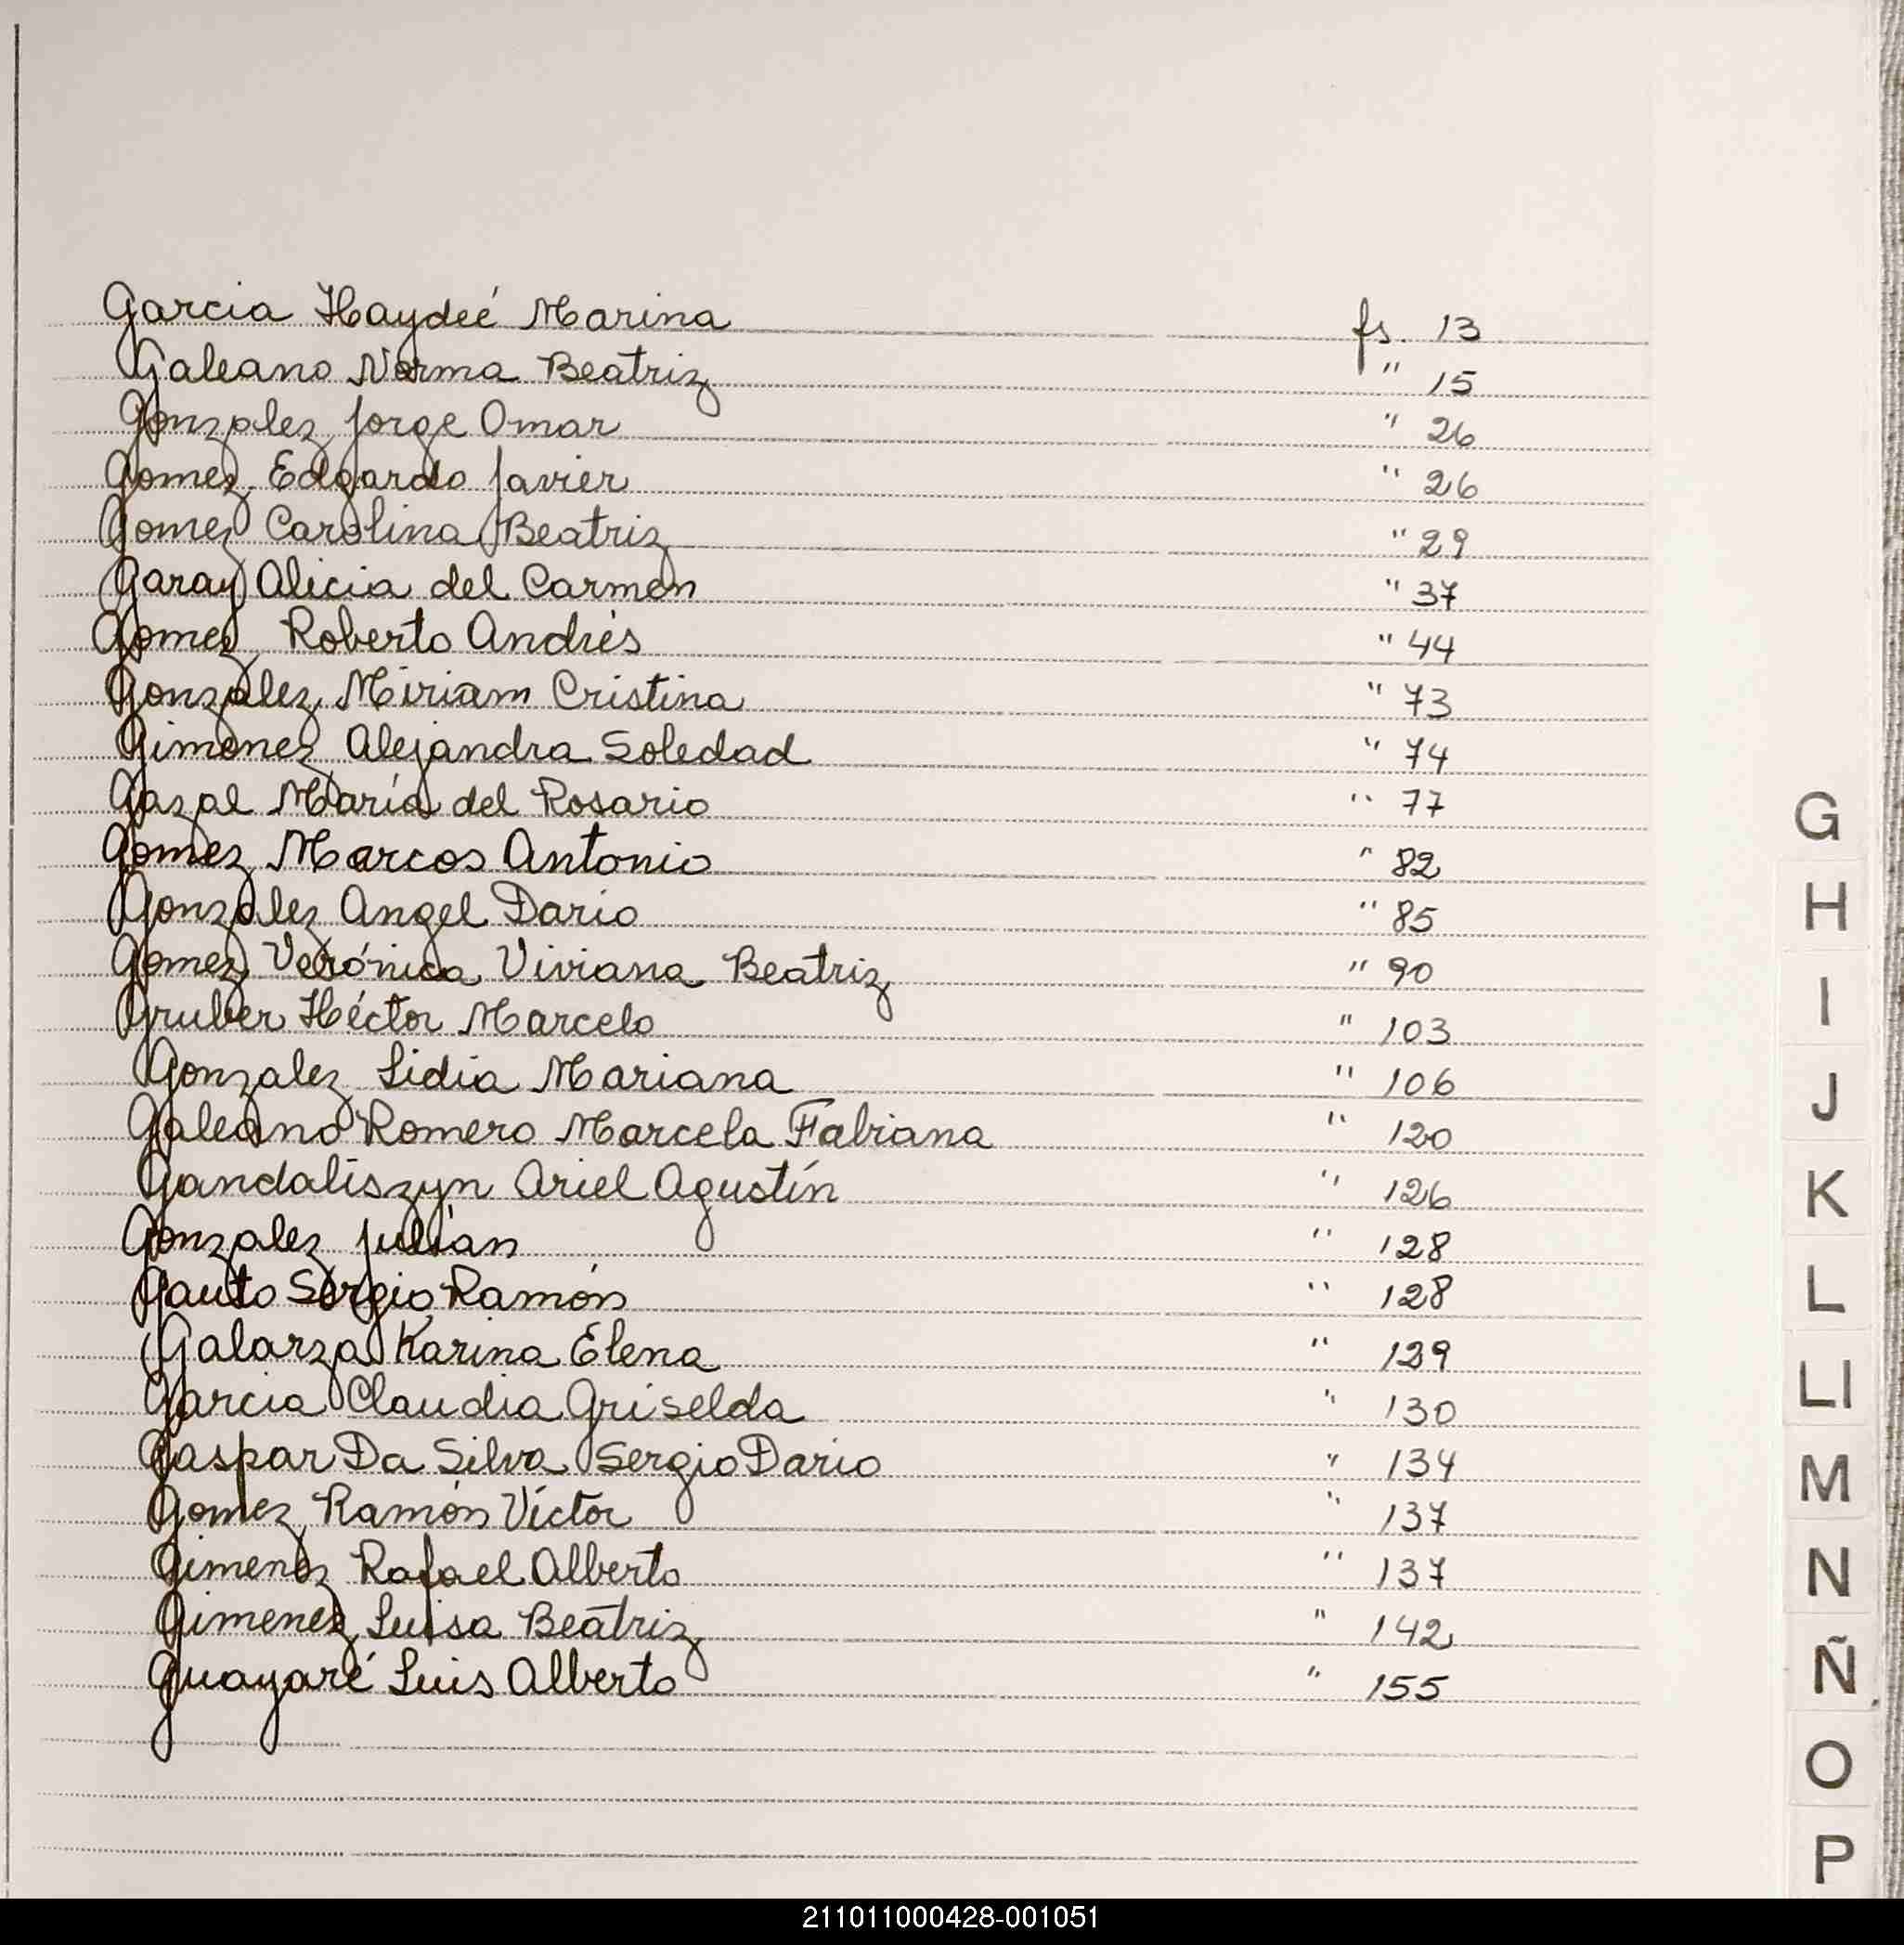 Garcia Haydeé Marina fs. 13
Galeano Norma Beatriz " 15
Gonzalez Jorge Omar " 26
Gomez Edgardo Javier " 26
Gomez Carolina Beatriz " 29
Garay Alicia del Carmen " 37
Gomez Roberto Andrés " 44
Gonzalez Miriam Cristina " 73
Gimenez Alejandra Soledad " 74
Gazal María del Rosario " 77
Gomez Marcos Antonio " 82
Gonzalez Angel Dario " 85
Gomez Verónica Viviana Beatriz " 90
Gruber Héctor Marcelo " 103
Gonzalez Lidia Mariana " 106
Galeano Romero Marcela Fabiana " 120
Gandaliszyn Ariel Agustín " 126
Gonzalez Julián " 128
Gauto Sergio Ramón " 128
Galarza Karina Elena " 129
Garcia Claudia Griselda " 130
Gaspar Da Silva Sergio Dario " 134
Gomez Ramón Víctor " 137
Gimenez Rafael Alberto " 137
Gimenez Luisa Beatriz " 142
Guayaré Luis Alberto " 155
G
H
I
J
K
L
Ll
M
N
Ñ
O
P
211011000428-001051